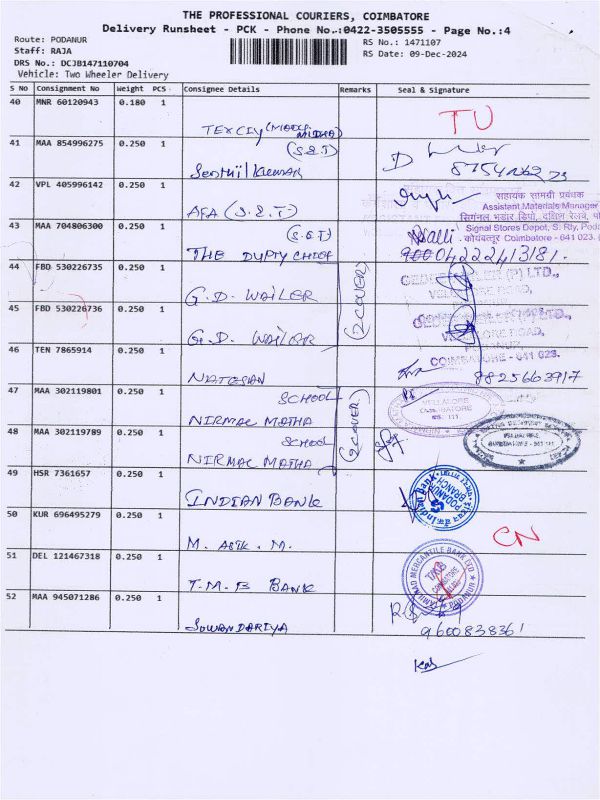 THE PROFESSIONAL COURIERS, COIMBATORE
Delivery Runsheet - PCK - Phone No.:0422-3505555 - Page No.:4
Route: PODANUR
RS No.: 1471107
Staff: RAJA
RS Date: 09-Dec-2024
DRS No.: DCJB147110704
Vehicle: Two Wheeler Delivery
S No Consignment No Weight PCS Consignee Details Remarks Seal & Signature
40 MNR 60120943 0.180 1
TU
41 MAA 854996275 0.250 1 (S.E.T)
Senthil Kumar
42 VPL 405996142 0.250 1
AFA (S.E.T)
सहायक सामग्री प्रबंधक
Assistant Materials Manager
सिगंनल भंडार डिपो, दक्षिण रेलवे,
Signal Stores Depot, S. Rly,
कोयंबत्तूर Coimbatore - 641 023.
43 MAA 704806300 0.250 1 (S.E.T)
THE DUPTY CHIEF
04222413181.
44 FBD 530226735 0.250 1
G.D. WAILER
(2 COVER)
45 FBD 530226736 0.250 1
G.D. WAILER
COIMBATORE - 641 023.
46 TEN 7865914 0.250 1
NATESAN
8825663917
47 MAA 302119801 0.250 1 SCHOOL
NIRMAL MATHA
(2 COVER)
48 MAA 302119789 0.250 1 SCHOOL
NIRMAL MATHA
49 HSR 7361657 0.250 1
INDIAN BANK
PODANUR
BRANCH
50 KUR 696495279 0.250 1
M. Asik. M.
CN
51 DEL 121467318 0.250 1
T.M.B BANK
TAMILNAD MERCANTILE BANK LTD
PODANUR
52 MAA 945071286 0.250 1
SOWANDARIYA
9600838361